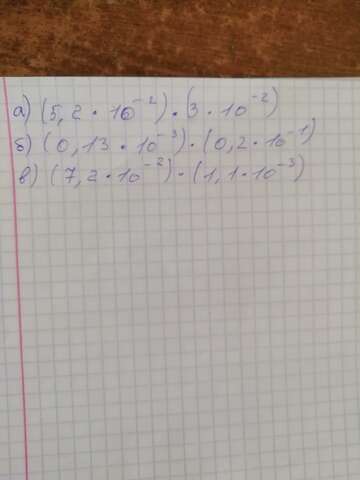 а) (5,2 · 10⁻²) · (3 · 10⁻²)
б) (0,13 · 10⁻³) · (0,2 · 10⁻¹)
в) (7,2 · 10⁻²) · (1,1 · 10⁻³)